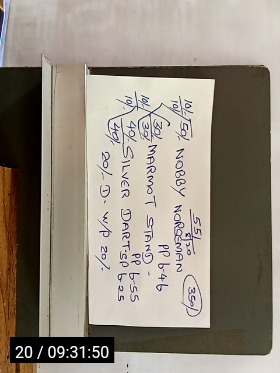 55/
8:30
350/
10/. 50/. NOBBY NORSEMAN
10/.
PP 6-46
30/. MARMOT STAND -
30/.
10/. 40/. SILVER DART-SP 6 25
10/. 40/.
PP 6-55
20/- D- W/P 20/.
20 / 09:31:50